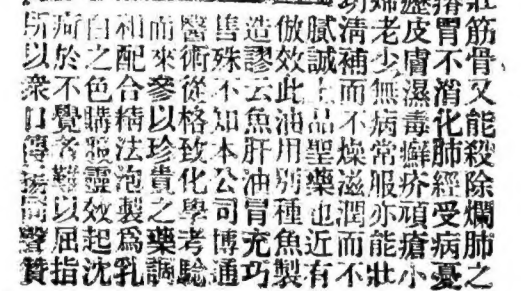 筋骨又能殺除爛肺之
胃不消化肺經受病憂
皮膚濕毒癬疥頑瘡小
婦老少無病常服亦能壯
功清補而不燥滋潤而不
膩誠上品聖藥也近有
倣效此油用別種魚製
造謬云魚肝油冒充巧
售殊不知本公司博通
醫術從格致化學考驗
而來參以珍貴之藥調
和配合精法泡製爲乳
白之色購服靈效起沈
疴於不覺者難以屈指
所以衆口傳揚同聲贊